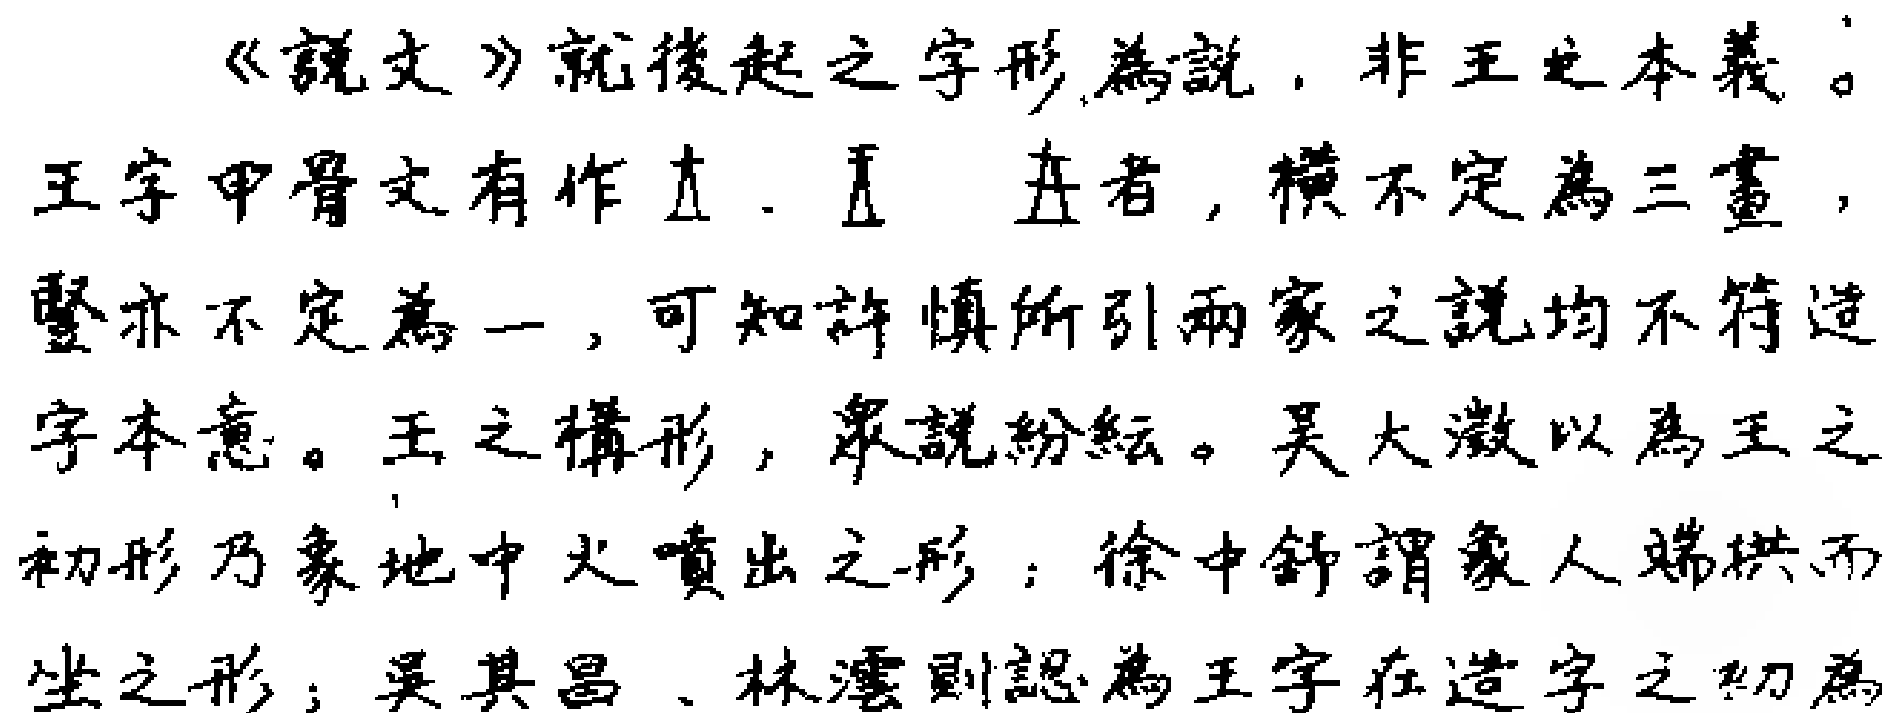 《説文》就後起之字形為説，非王之本義。
王字甲骨文有作、者，横不定為三畫，
豎亦不定為一，可知許慎所引兩家之説均不符造
字本意。王之構形，衆説紛紜。吴大澂以為王之
初形乃象地中火噴出之形；徐中舒謂象人端拱而
坐之形；吳其昌、林澐則認為王字在造字之初為